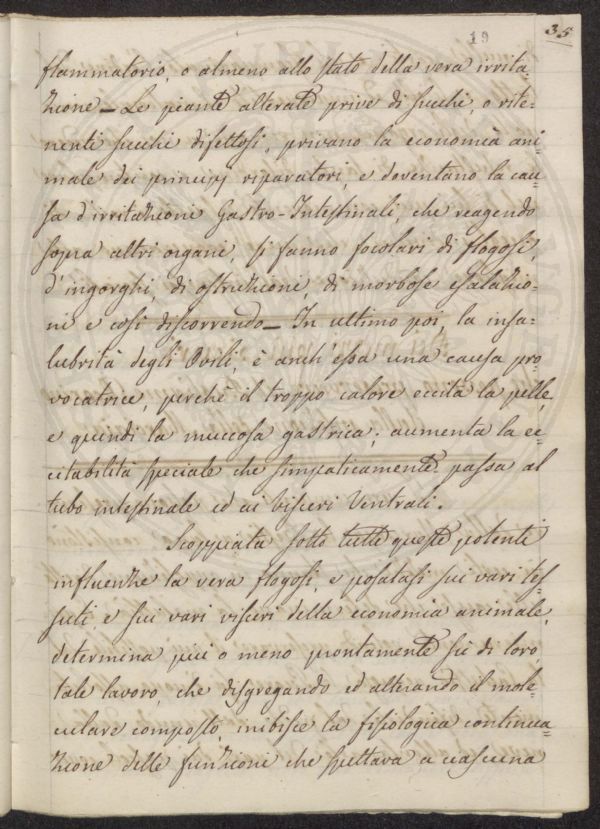 19 35
flammatorio, o almeno allo stato della vera irrita=
zione_ Le piante alterate prive di succhi, o rite=
nenti succhi difettosi, privano la economia ani=
male dei principj riparatori, e doventano la cau=
sa d'irritazioni Gastro-Intestinali, che reagendo
sopra altri organi, si fanno focolari di flogosi,
d'ingorghi, di ostruzioni, di morbose esalazio=
ni e così discorrendo_ In ultimo poi, la insa=
lubrità degli Ovili, è anch'essa una causa pro=
vocatrice, perchè il troppo calore eccita la pelle,
e quindi la muccosa gastrica; aumenta la ec=
citabilità speciale che simpaticamente passa al
tubo intestinale ed ai visceri Ventrali.
Scoppiata sotto tutte queste potenti
influenze la vera flogosi, e posatasi sui vari tes=
suti e sui vari visceri della economia animale,
determina più o meno prontamente su di loro
tale lavoro, che disgregando ed alterando il mole=
culare composto, inibisce la fisiologica continua=
zione delle funzioni che spettava a ciascuna